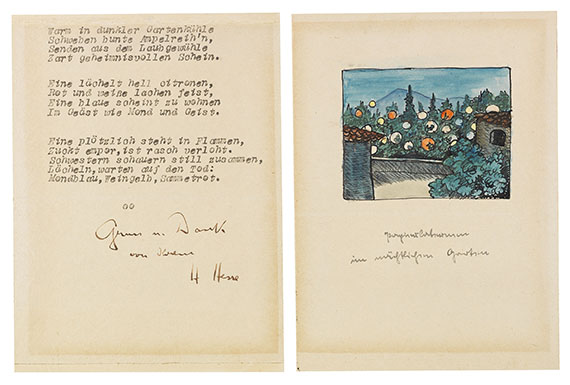 Warm in dunkler Gartenkühle
Schweben bunte Ampelreih'n,
Senden aus dem Laubgewühle
Zart geheimnisvollen Schein.
Eine lächelt hell citronen,
Rot und weiße lachen feist,
Eine blaue scheint zu wohnen
Im Geäst wie Mond und Geist.
Eine plötzlich steht in Flammen,
Zuckt empor, ist rasch verloht.
Schwestern schauern still zusammen,
Lächeln, warten auf den Tod:
Mondblau, Weingelb, Sammetrot.
oo
Gruss u. Dank
von Ihrem
H Hesse
Papierlaternen
im nächtlichen Garten